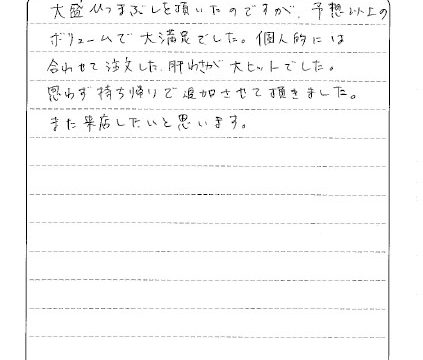 大盛ひつまぶしを頂いたのですが、予想以上の
ボリュームで大満足でした。個人的には
合わせて注文した肝わさが大ヒットでした。
思わず持ち帰りで追加させて頂きました。
また来店したいと思います。